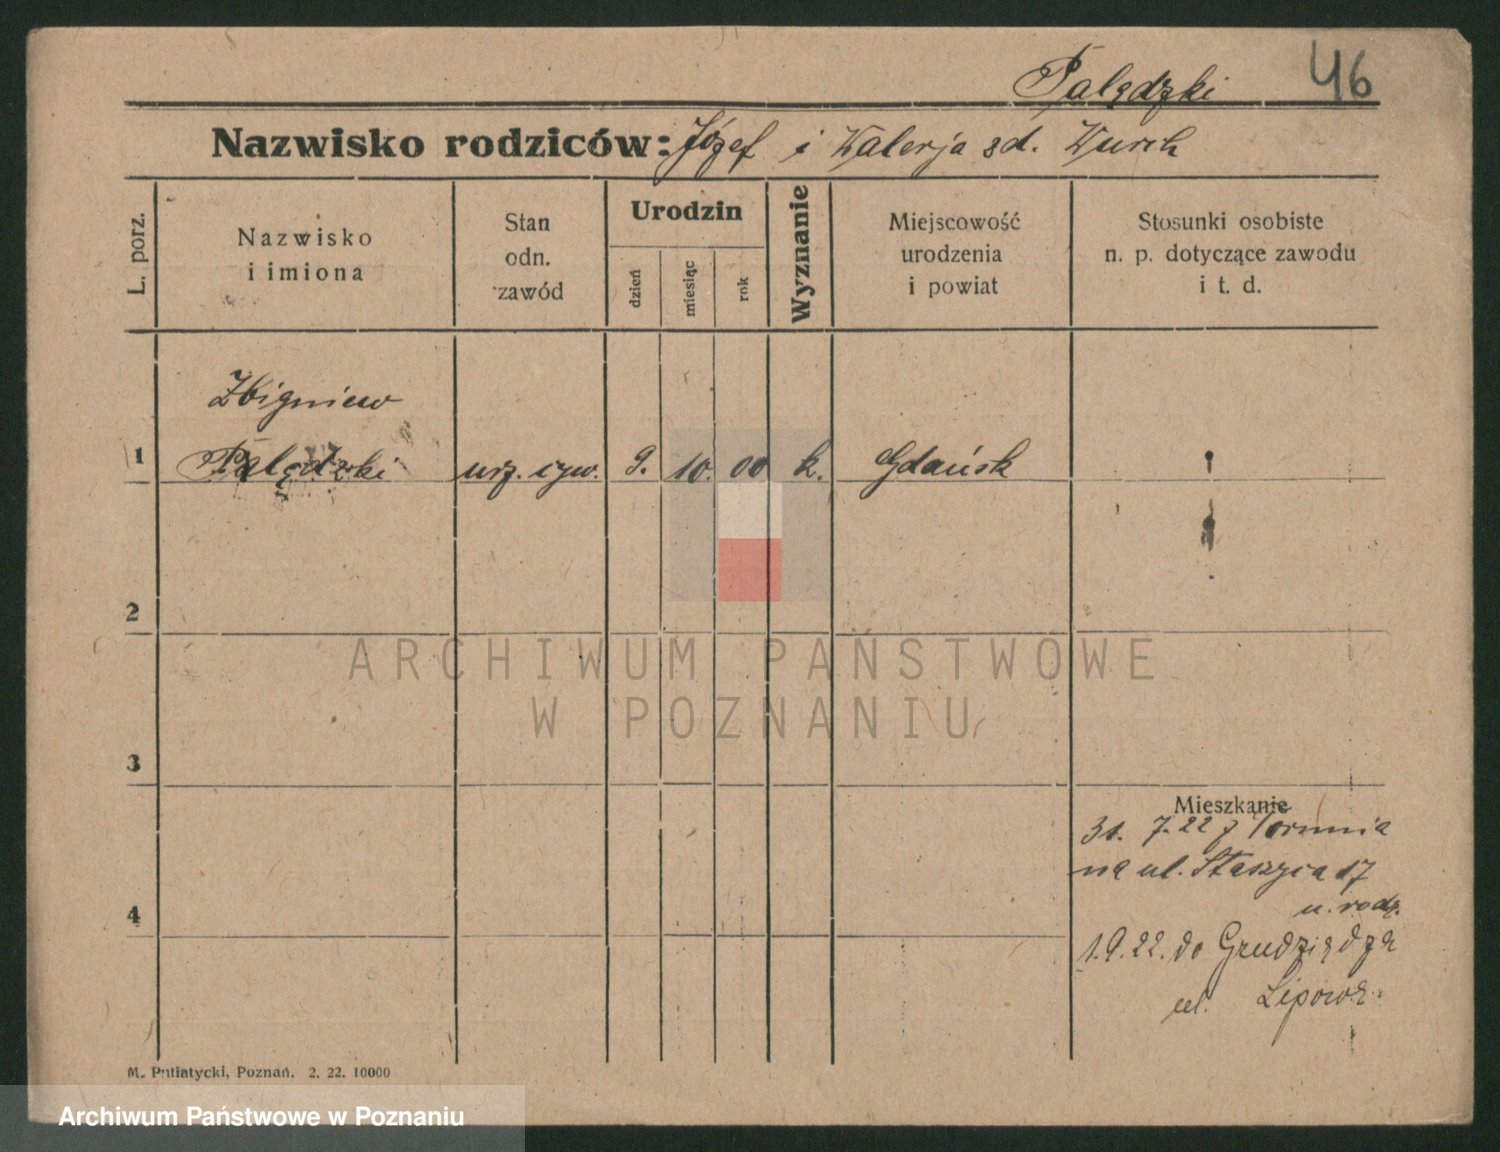 46
Palędzki
Nazwisko rodziców: Józef i Walerja zd.
L. porz.
Nazwisko
i imiona
Stan
odn.
zawód
Urodzin
dzień
miesiąc
rok
Wyznanie
Miejscowość
urodzenia
i powiat
Stosunki osobiste
n. p. dotyczące zawodu
i t. d.
Zbigniew
1 Palędzki urz. cyw. 9. 10. 00 k. Gdańsk
2
ARCHIWUM PAŃSTWOWE
W POZNANIU
3
Mieszkanie
31. 7. 22 z Torunia
na ul. Staszyca 17
4
u. rodz.
1.9.22. do Grudziądza
ul. Lipowa
M. Putiatycki, Poznań. 2. 22. 10000
Archiwum Państwowe w Poznaniu